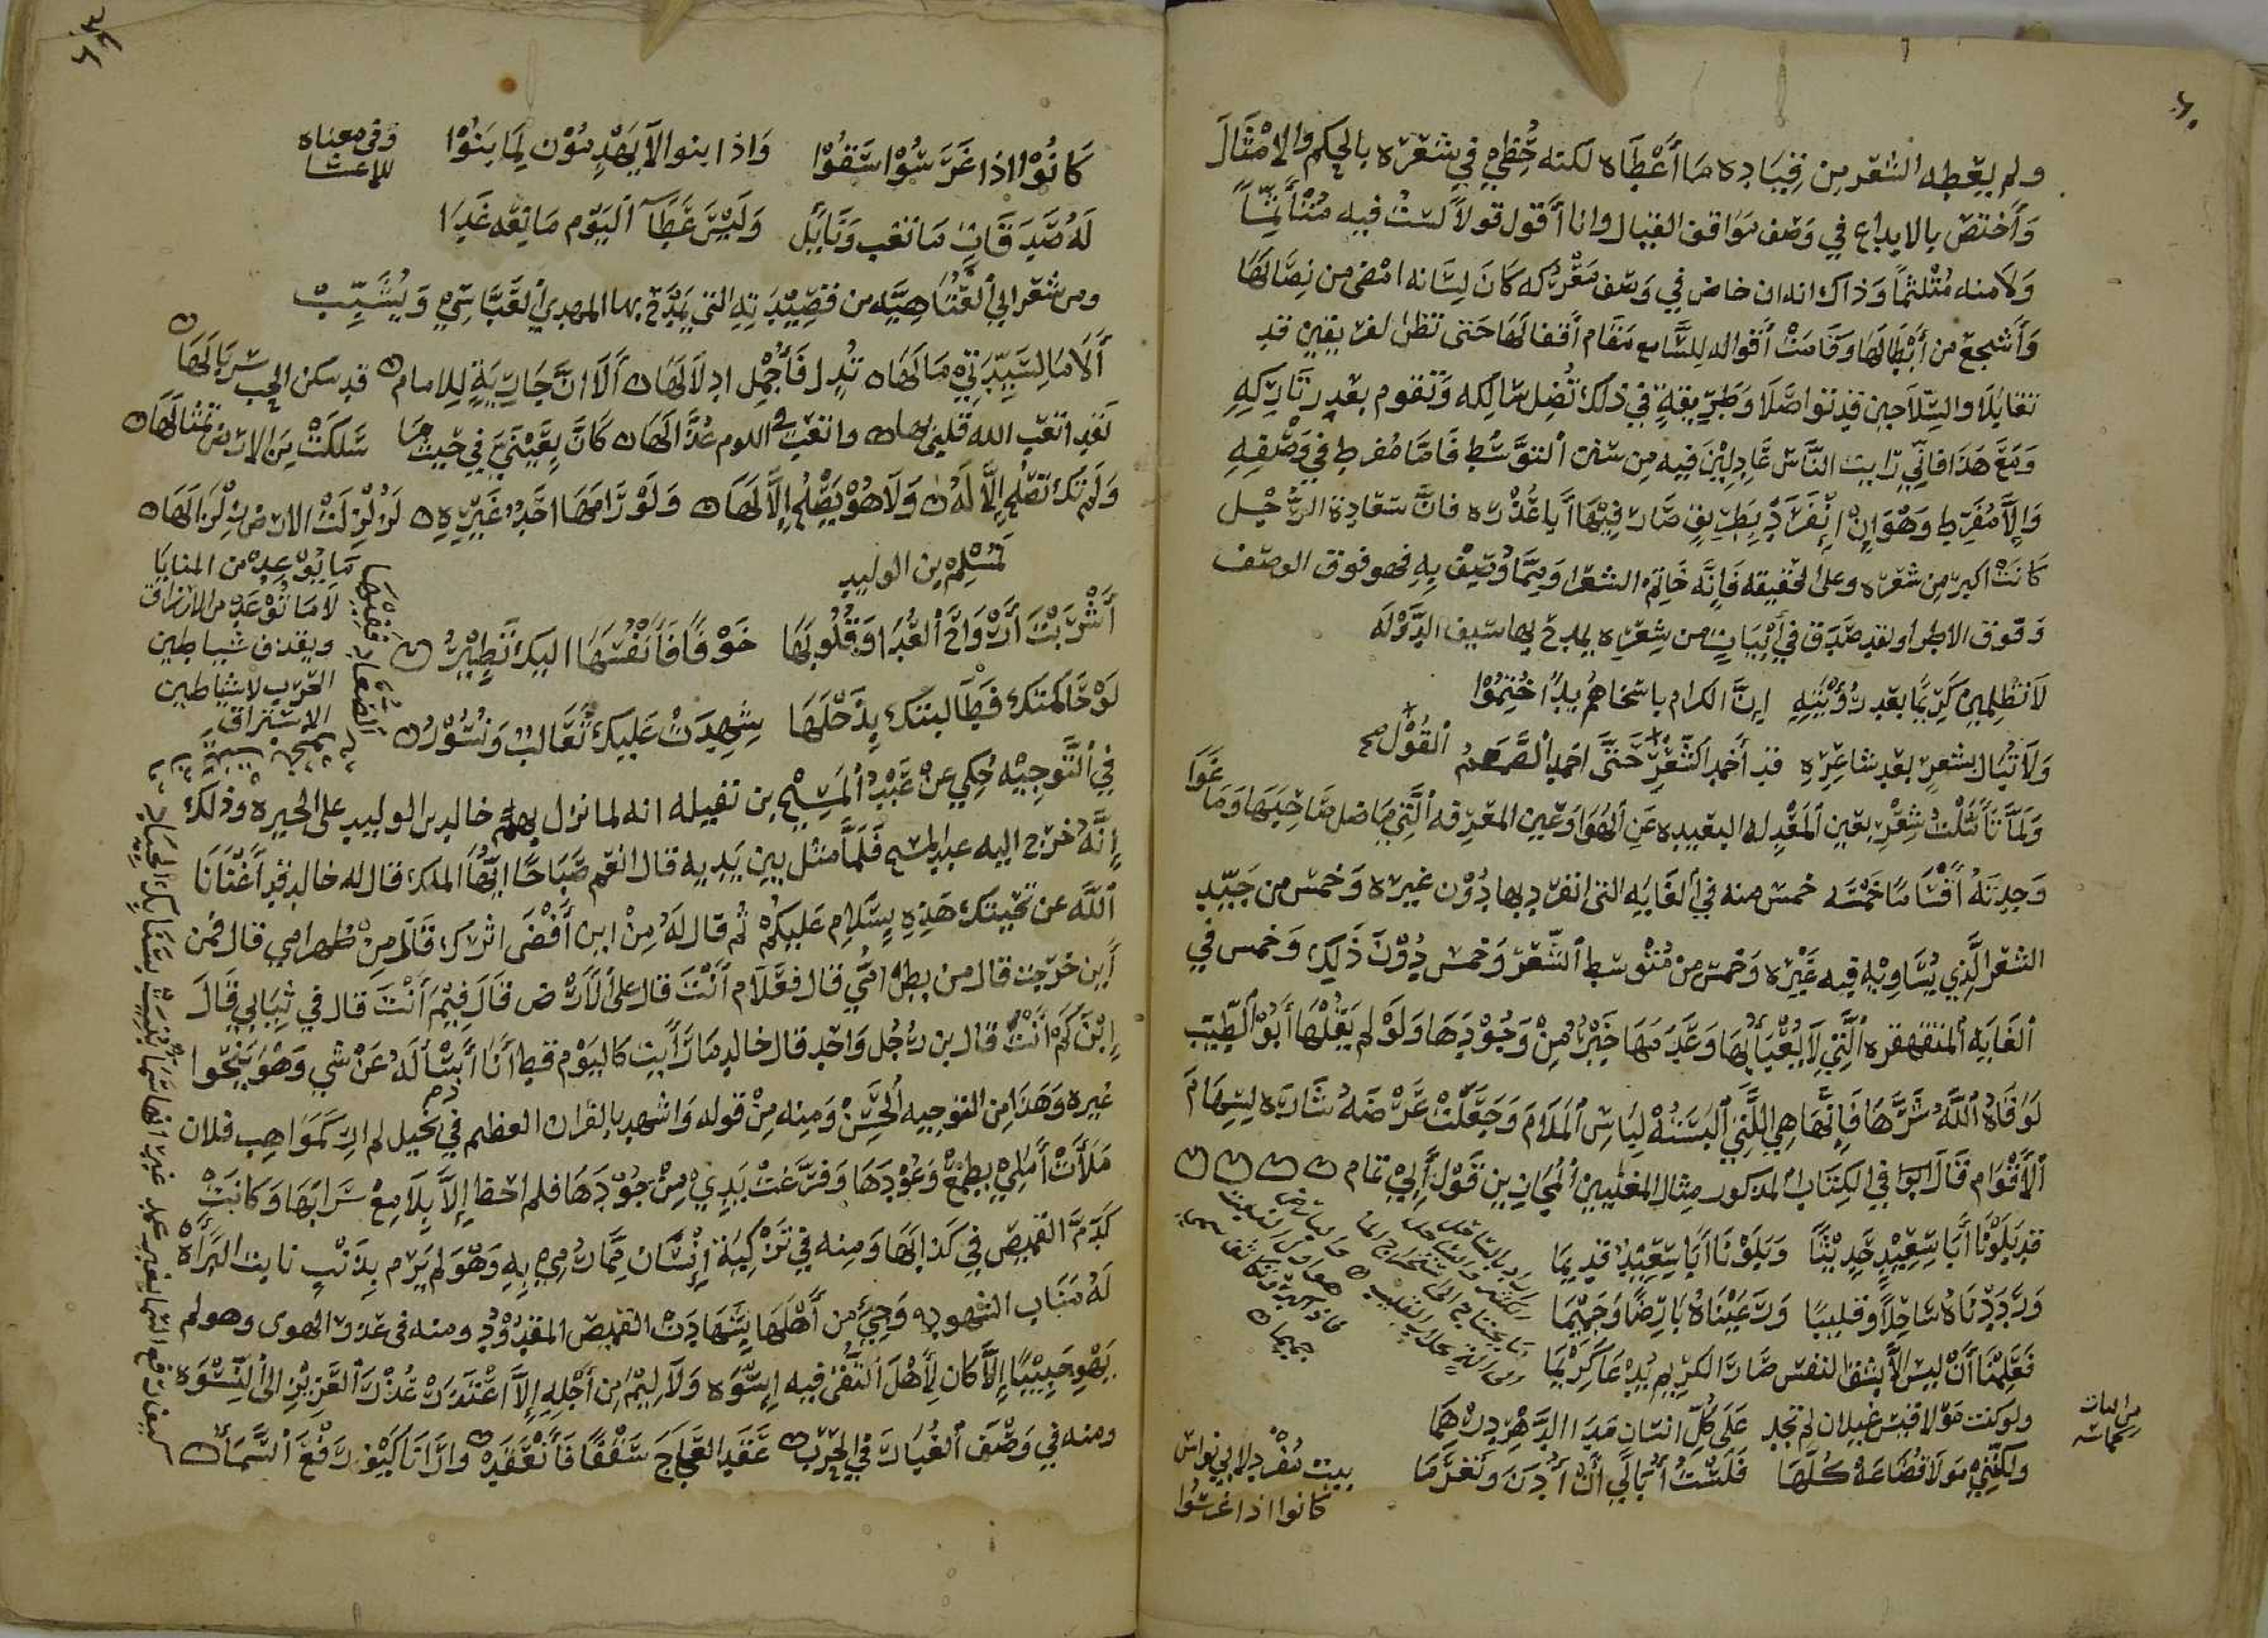 ولم يعطه الشعر من قياده ما أعطاه لكنه حظي في شعره بالحكم والامثال
وأختص بالابداع في وصف مواقف القتال وانا أقول قولاً لست فيه متأثماً
ولا منه متلثماً وذاك انه ان خاض في وصف معركه كان لسانه امضى من نصالها
وأشجع من أبطالها وقامت أقواله للسامع مقام أفعالها حتى تظن الفريقين قد
تقابلا والسلاحين قد تواصلا وطريقة في ذلك تضل سالكه وتقوم بعذر تاركه
ومع هذا فاني رايت الناس عادلين فيه من سنن التوسط فاما مفرط في وصفه
والا مفرط وهو إن إنفرد بطريق صار فيها أبا عذره فان سعادة الرجل
كانت اكبر من شعره وعلى الحقيقه فانه خاتم الشعرا ومهما وصف به فهو فوق الوصف
وفوق الاطرا ولقد صدق في أبيات من شعره يمدح بها سيف الدوله
لا تطلبن كريما بعد رؤيته إن الكرام باسخاهم يدا ختموا
ولا تبال بشعر بعد شاعره قد أفسد القول حتى احمد الصمم
ولما تأملت شعره بعين المعدله البعيده عن الهوا وعين المعرفه التي ما ضل صاحبها وما غوا
وجدته أقساما خمسه خمس منه في الغايه التي انفرد بها دون غيره وخمس من جيد
الشعر الذي يساويه فيه غيره وخمس من متوسط الشعر وخمس دون ذلك وخمس في
الغايه المتقهقره التي لا يعبأ بها وعدمها خير من وجودها ولو لم يقلها أبو الطيب
لوقاه الله شرها فإنها هي التي البسته لباس الملام وجعلت عرضه شاره لسهام
الأقوام قال ابو في الكتاب المذكور مثال المغلبين المجانين قول أبي تمام
قد بلونا أبا سعيد حديثا وبلونا أبا سعيد قديما
ووردناه ساحلا وقليبا ورعيناه بارضا وجميما
فعلمنا أن ليس الا بشق النفس صار الكريم يدعا كريما
ولو كنت مولا قيس غيلان لم تجد على كل انسان من الدهر درهما
ولكنني مولا قضاعة كلها فلست أبالي أن أدين وتغرما
بيت مفرد لابي نواس
كانوا اذا غرسوا
كانوا اذا غرسوا سقوا واذا بنوا لا يهدمون لما بنوا
وفي معناه
للاعشا
له صدقات ما تغب ونايل وليس عطآ اليوم مانعه غدا
ومن شعر ابي العتاهيه من قصيدته التي يمدح بها المهدي العباسي ويشبب
ألا ما لسيدتي ما لها تدل فأجمل ادلالها ألا ان جارية للامام قد سكن الحب سربالها
لقد اتعب الله قلبي بها واتعب في اللوم عذالها كان بعيني في حيث ما سلكت من الارض تمثالها
ولم تك تصلح إلا له ولا هو يصلح إلا لها ولو رامها احد غيره لزلزلت الارض زلزالها
لمسلم بن الوليد
أشربت أرواح العدا وقلوبها خوفا فأنفسها اليك تطير
لو حاكمتك فطالبتك بذحلها شهدت عليك ثعالب ونسور
في التوجيه حكي عن عبد المسيح بن نفيله انه لما نزل بهم خالد بن الوليد على الحيره وذلك
إنه خرج اليه عبد المسيح فلما مثل بين يديه قال انعم صباحا ايها الملك فقال له خالد قد أغنانا
الله عن تحيتك هذه بسلام عليكم ثم قال له من اين أقصى اثرك قال من ظهر ابي قال فمن
أين خرجت قال من بطن امي قال فعلام أنت قال على الأرض قال فيم أنت قال في ثيابي قال
إبن كم أنت قال بن رجل واحد قال خالد ما رأيت كاليوم قط أنا أسأله عن شي وهو ينحوا
غيره وهذا من التوجيه الحسن ومنه من قوله واشهد بالقران العظيم في ذم بخيل لم ار كمواهب فلان
ملأت أملي بطمع وعودها وفرغت يدي من جودها فلم احظ إلا بلامع سرابها وكانت
كدم القميص في كذابها ومنه في تزكية إنسان مما رمي به وهو لم يرم بذنب نابت البرأة
له مناب الشهود وجي من أهلها بشهادت القميص المقدود ومنه في عذر الهوى وهو لم
يهو حبيبا إلا كان لأهل التقى فيه إسوه ولا ليم من أجله إلا اعتذرت عذر العزيز الى النسوه
ومنه في وصف الغبار في الحرب عقد العجاج سقفا فانعقد وارانا كيف رفع السما
ما يوعده من المنايا
لا ما توعده من الارزاق
ويقذف شياطين
الحرب لا شياطين
الاستراق